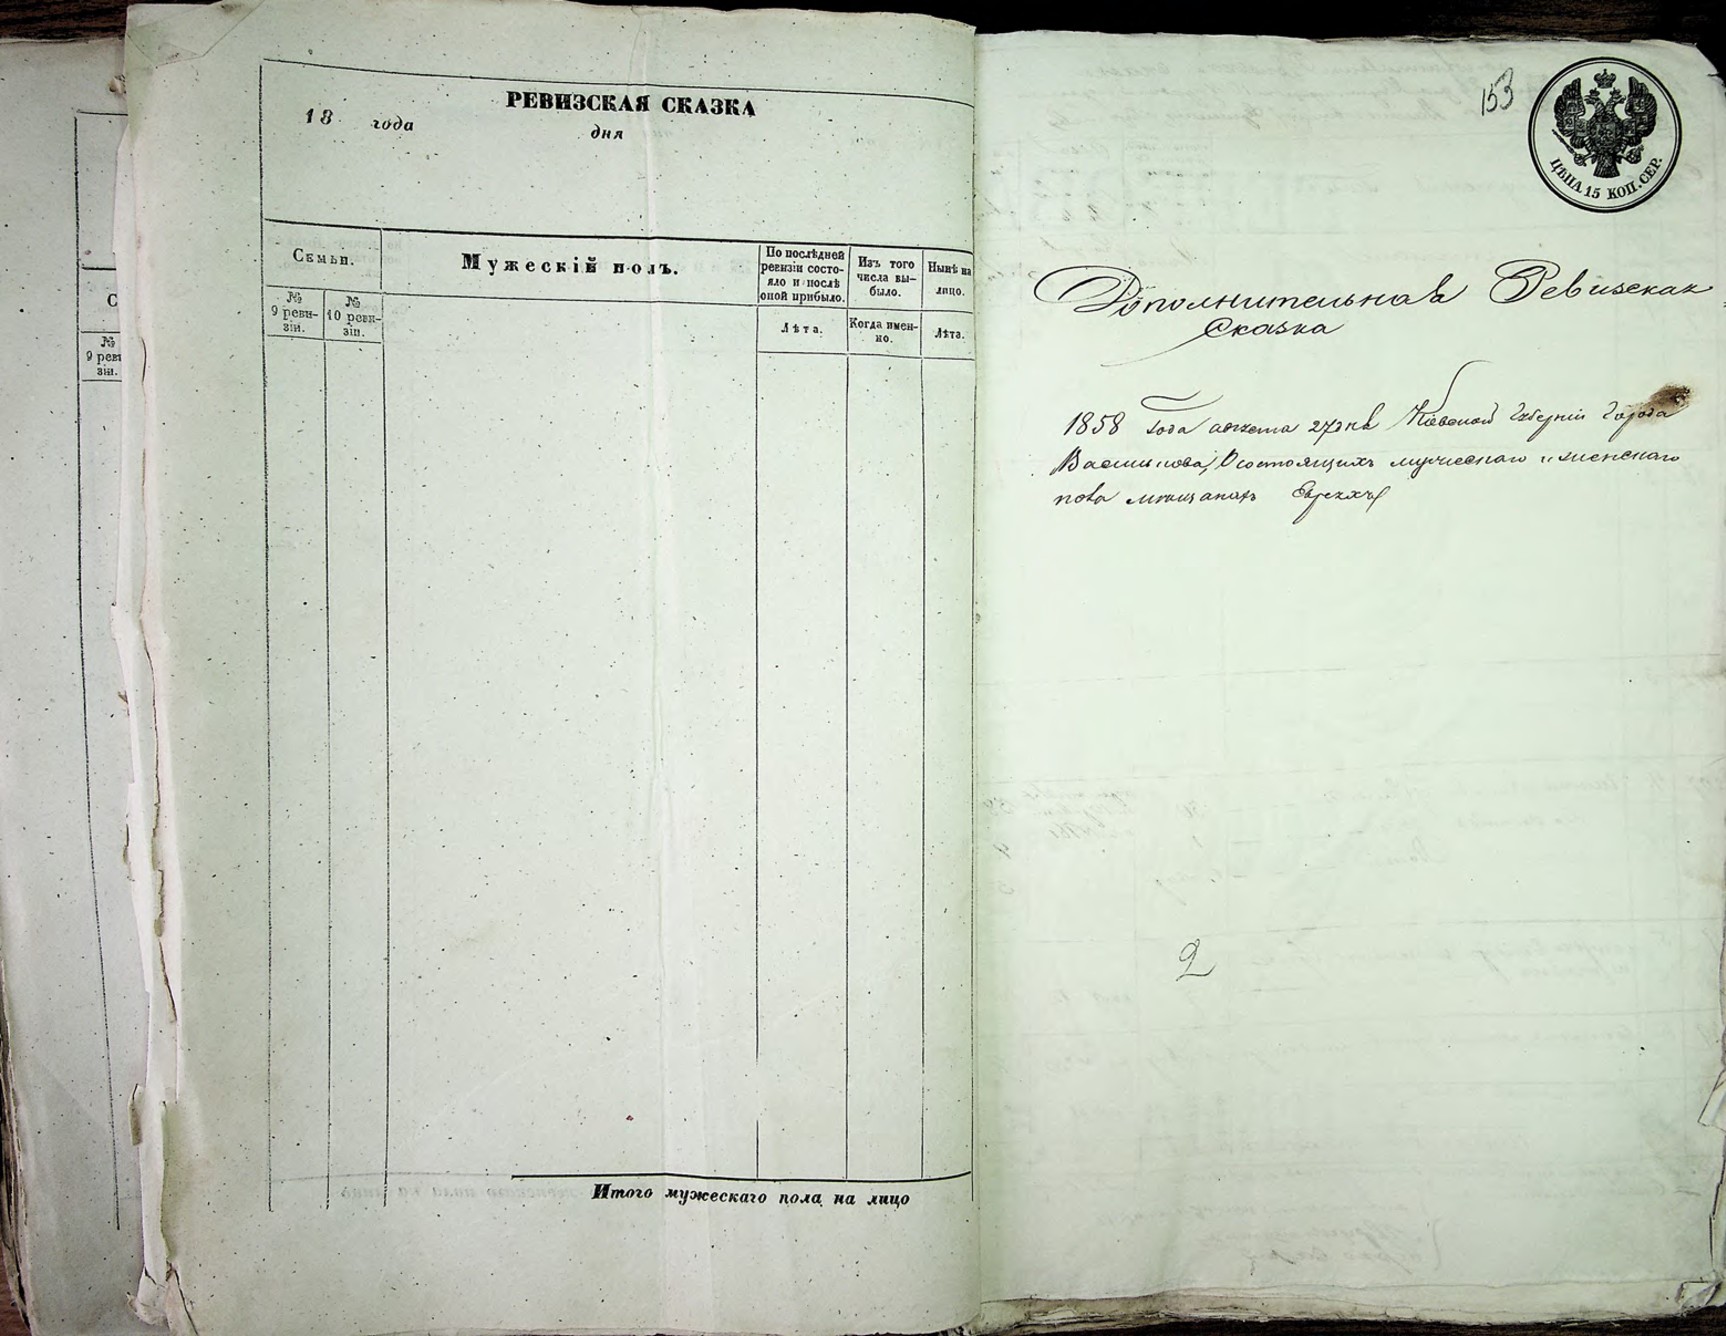 РЕВИЗСКАЯ СКАЗКА
18 года
дня
Семьи.
Мужескій полъ.
По послѣдней ревизіи состояло и послѣ оной прибыло.
Изъ того числа выбыло.
Нынѣ на лицо.
№ 9 ревизіи.
№ 10 ревизіи.
Лѣта.
Когда именно.
Лѣта.
Итого мужескаго пола на лицо
С
№
9 реви
зіи.
153
ЦѢНА 15 КОП. СЕР.
Дополнительная Ревизская
Сказка
1858 Года августа 27 дня Кіевской Губерніи Города
Василькова, О состоящихъ мужескаго и женскаго
пола мещанахъ Евреяхъ
2